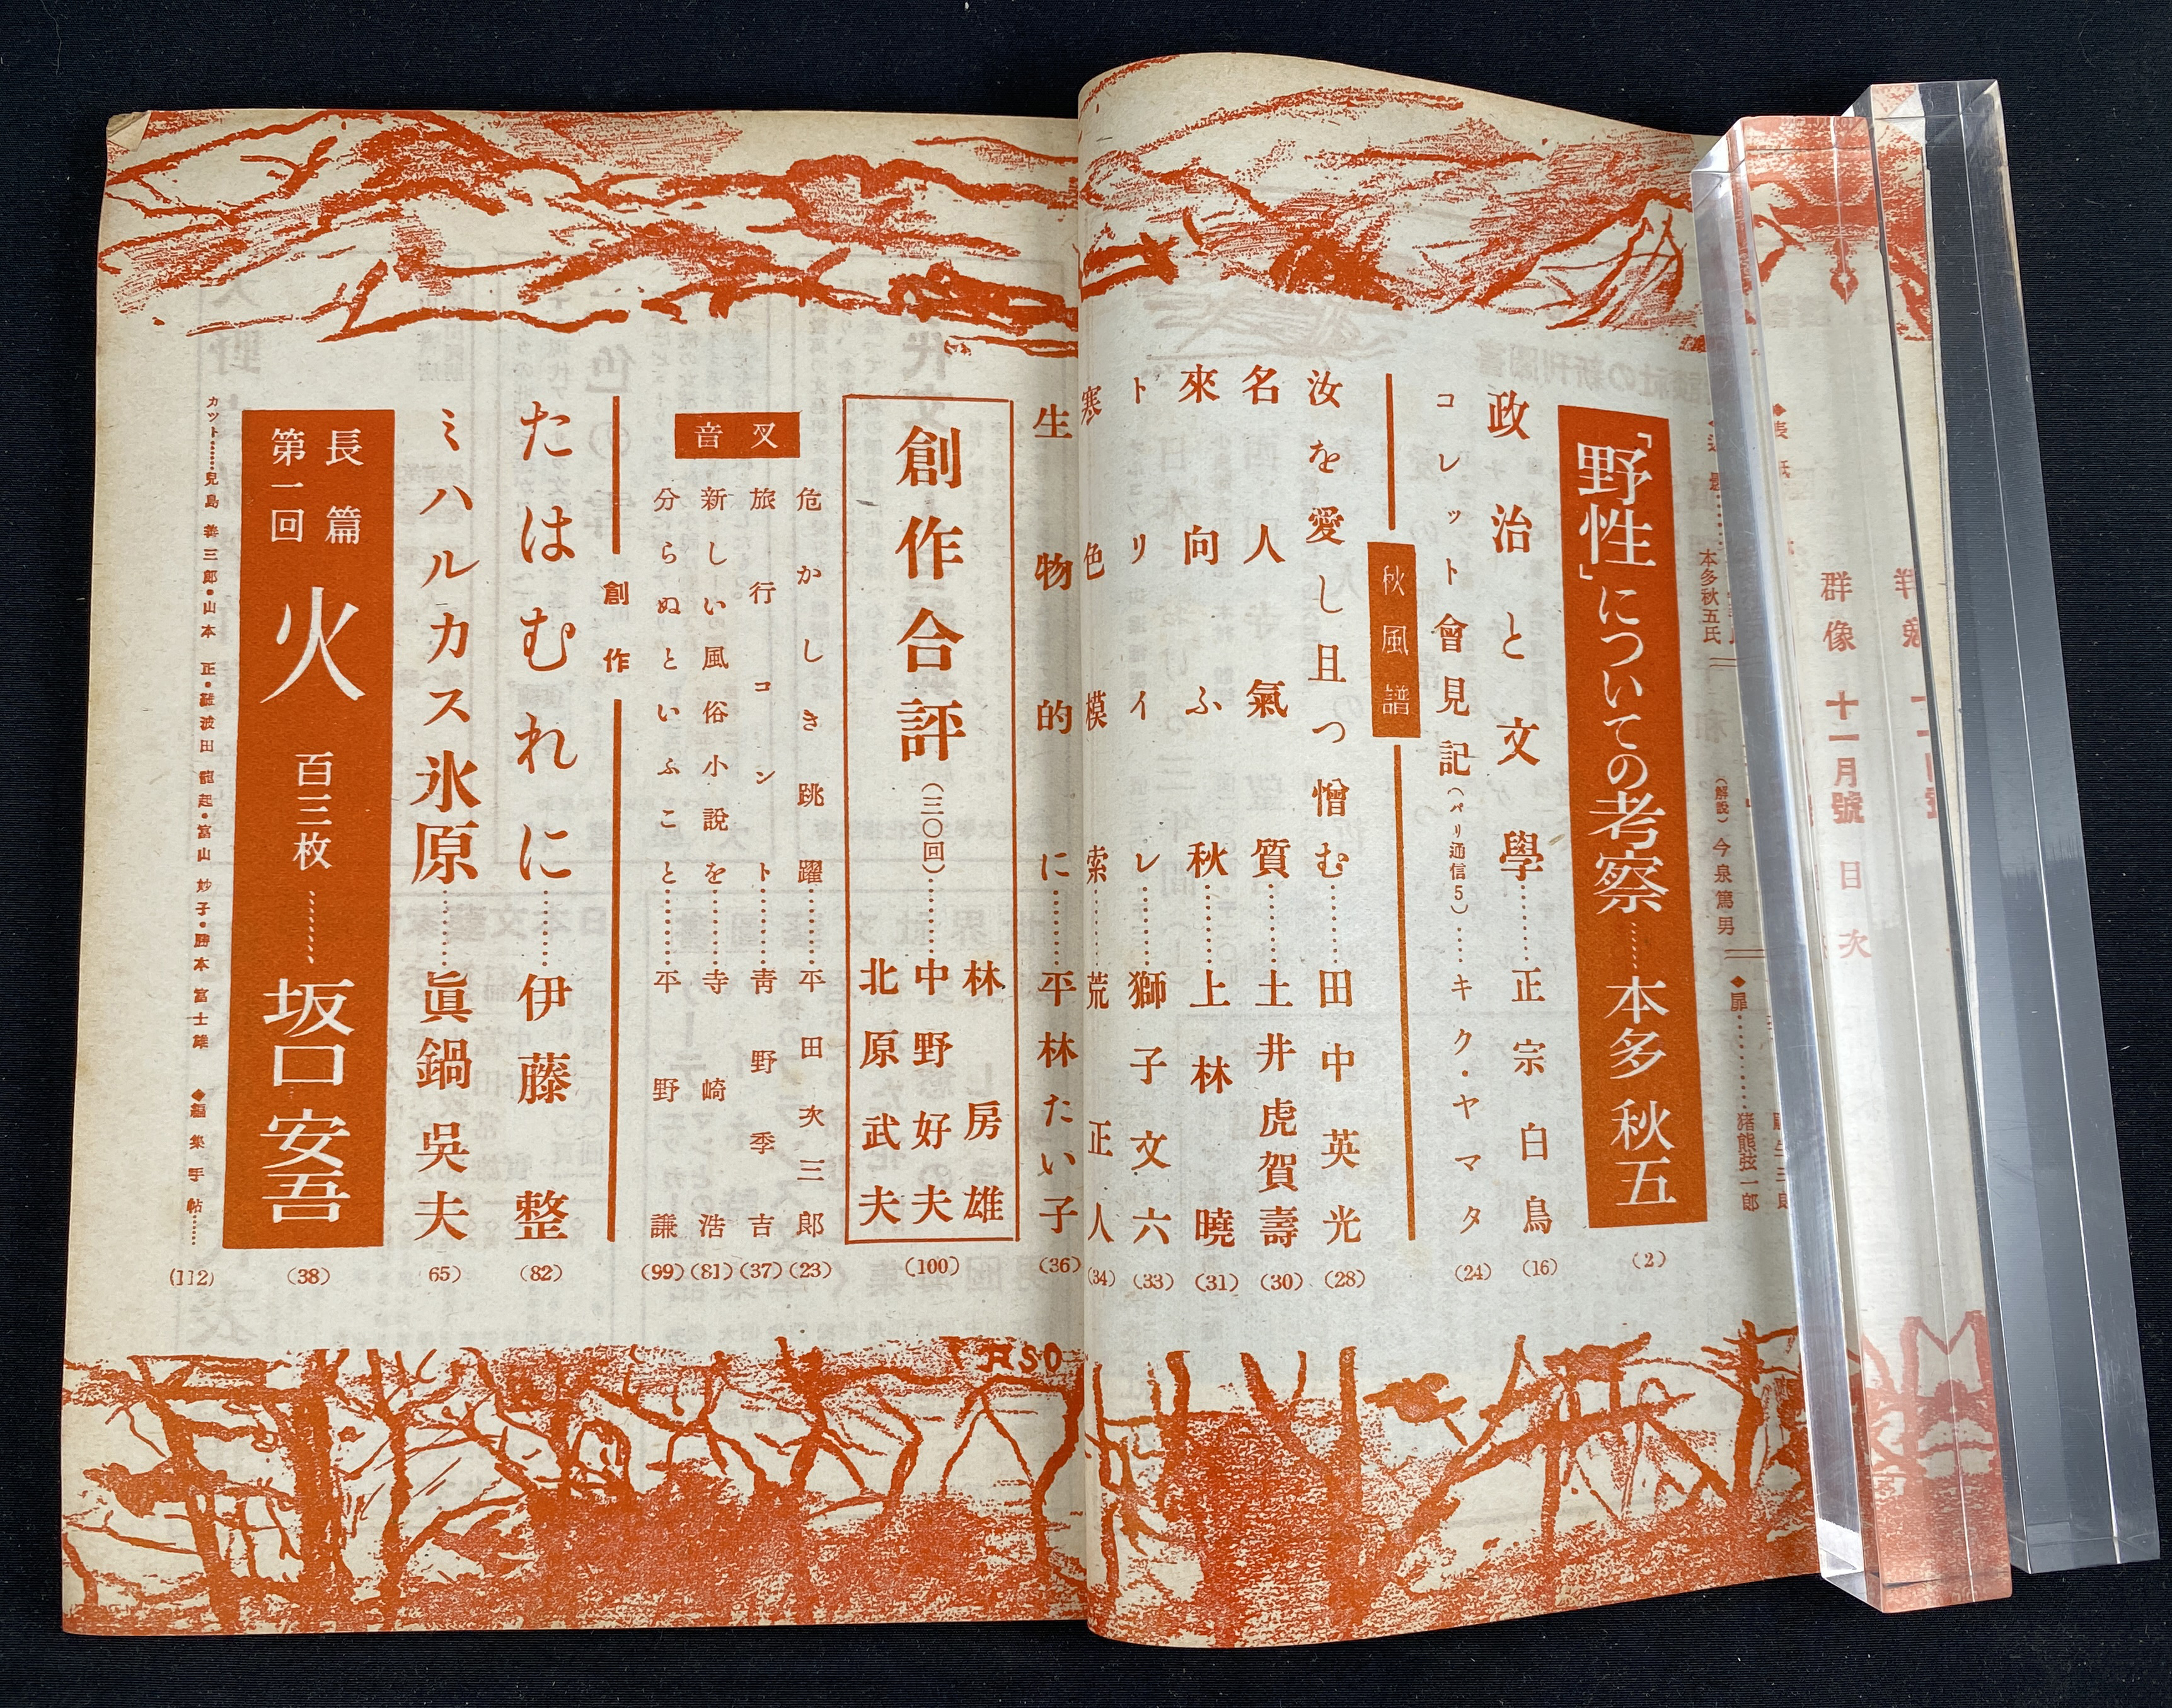 群像 十一月號 目次
本多秋五氏
(解説)今泉篤男
◆扉………猪熊弦一郎
「野性」についての考察……本多秋五(2)
政治と文學……正宗白鳥(16)
コレット會見記(パリ通信5)……キク・ヤマタ(24)
秋風譜
汝を愛し且つ憎む……田中英光(28)
名人氣質……土井虎賀壽(30)
來向ふ秋……上林曉(31)
トリイレ……獅子文六(33)
寒色模索……荒正人(34)
生物的に……平林たい子(36)
創作合評(三〇回)……林房雄 中野好夫 北原武夫(100)
叉音
危かしき跳躍……平田次三郎(23)
旅行コント……靑野季吉(37)
新しい風俗小説を……寺崎浩(81)
分らぬといふこと……平野謙(99)
創作
たはむれに……伊藤整(82)
ミハルカス氷原……眞鍋呉夫(65)
長篇第一回 火 百三枚……坂口安吾(38)
カット……兒島善三郎・山本正・難波田龍起・富山妙子・勝本富士雄 ◆編集手帖……(112)